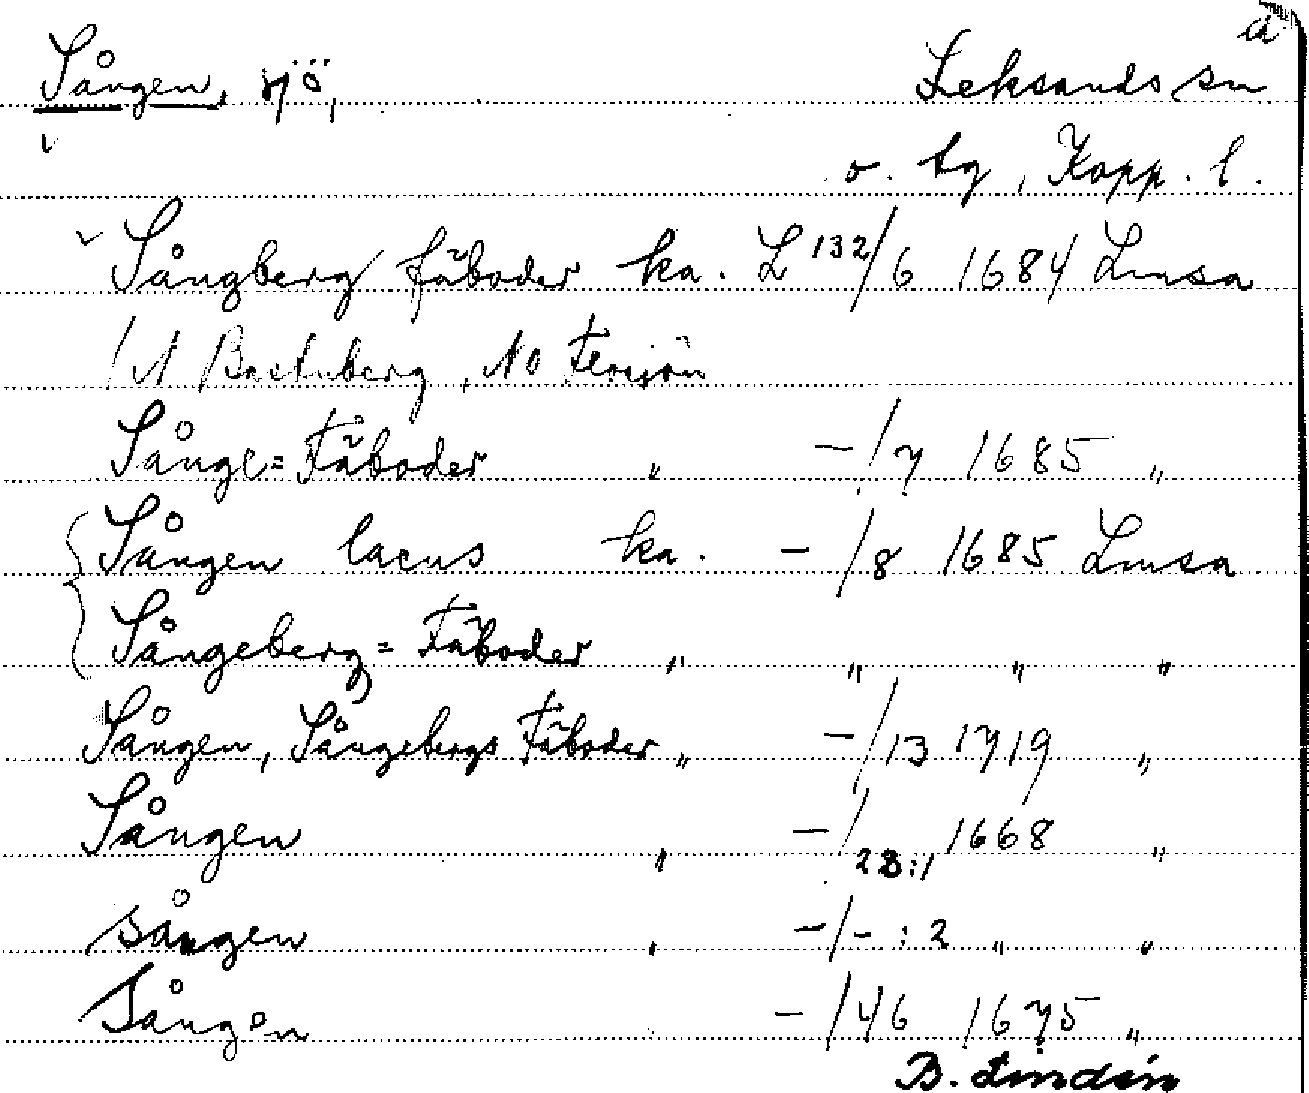 Sången, sjö, Leksands sn
o. tg, Kopp. l.
Sångberg fäboder ka. L 132/6 1684 Lmsa
/N Bastuberg, NO Fensjön
Sånge=Fäboder " -/7 1685 "
Sången lacus ka. -/8 1685 Lmsa
Sångeberg=Fäboder " " " "
Sången, Sångebergs Fäboder " -/13 1719 "
Sången " -/28:1 1668 "
sången " -/- :2 " "
Sången -/46 1675 "
B. Lindén